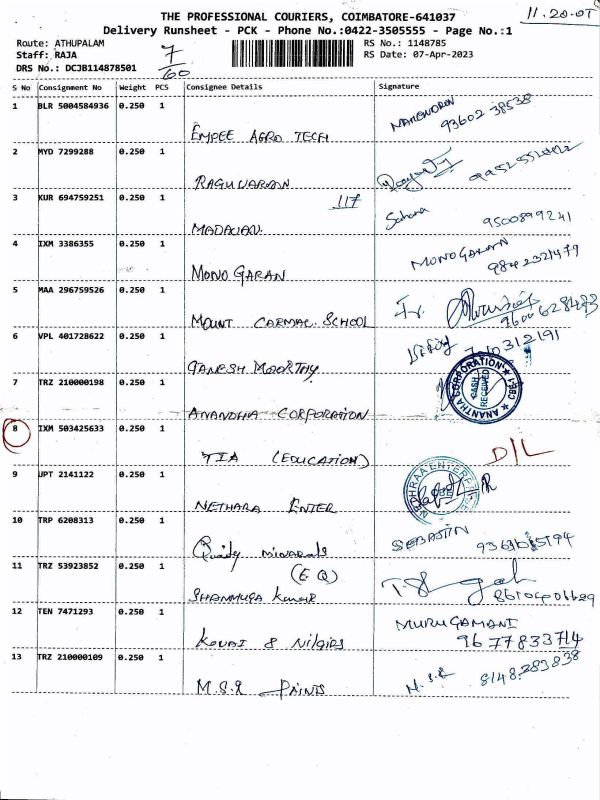 11.20.0T
THE PROFESSIONAL COURIERS, COIMBATORE-641037
Delivery Runsheet - PCK - Phone No.:0422-3505555 - Page No.:1
Route: ATHUPALAM RS No.: 1148785
Staff: RAJA RS Date: 07-Apr-2023
DRS No.: DCJB114878501
7/60
S No Consignment No Weight PCS Consignee Details Signature
1 BLR 5004584936 0.250 1 EMPEE AGRO TECH 93602 38538
2 MYD 7299288 0.250 1 RAGUVARAN
117
3 KUR 694759251 0.250 1 MADAVAN. Sahana 9500899241
4 IXM 3386355 0.250 1 MONO GARAN MONOGARAN 9842321479
5 MAA 296759526 0.250 1 MOUNT CARMAL. SCHOOL
6 VPL 401728622 0.250 1 GANESH MOORTHY
7 TRZ 210000198 0.250 1 ANANDHA CORPORATION ANANTHA CORPORATION CASH RECEIVED CBE-1
8 IXM 503425633 0.250 1 TIA (EDUCATION) D/L
9 JPT 2141122 0.250 1 NETHARA ENTER
10 TRP 6208313 0.250 1 Quality minarals SEBASTIN
(E Q)
11 TRZ 53923852 0.250 1 SHANMUGA Kumar
12 TEN 7471293 0.250 1 KOVAI & Nilgiris MURUGAMANI 9677833714
13 TRZ 210000109 0.250 1 M.S.R PAINTS M.S.R 8148283838